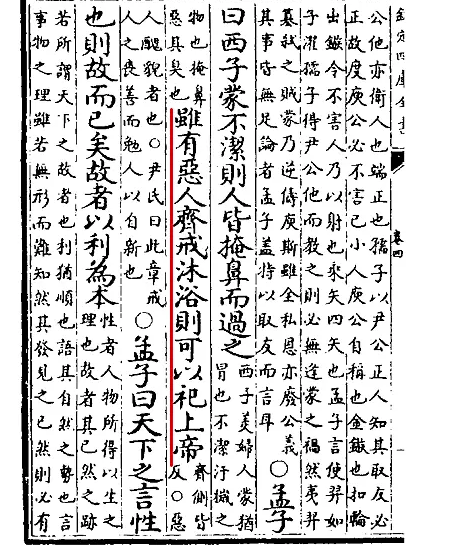 欽定四庫全書 卷四
公他亦衛人也端正也孺子以尹公正人知其取友必
正故度庾公必不害己小人庾公自稱也金鏃也扣輪
出鏃令不害人乃以射也乘矢四矢也孟子言使羿如
子濯孺子得尹公他而教之則必無逢蒙之禍然夷羿
篡弑之賊蒙乃逆儔庾斯雖全私恩亦廢公義
其事皆無足論者孟子蓋特以取友而言耳
○孟子
曰西子蒙不潔則人皆掩鼻而過之
西子美婦人蒙猶
冒也不潔汙穢之
物也掩鼻
惡其臭也
雖有惡人齊戒沐浴則可以祀上帝
齊側皆
反○惡
人醜貌者也○尹氏曰此章戒
人之喪善而勉人以自新也
○孟子曰天下之言性
也則故而已矣故者以利為本
性者人物所得以生之
理也故者其已然之跡
若所謂天下之故者也利猶順也語其自然之勢也言
事物之理雖若無形而難知然其發見之已然則必有